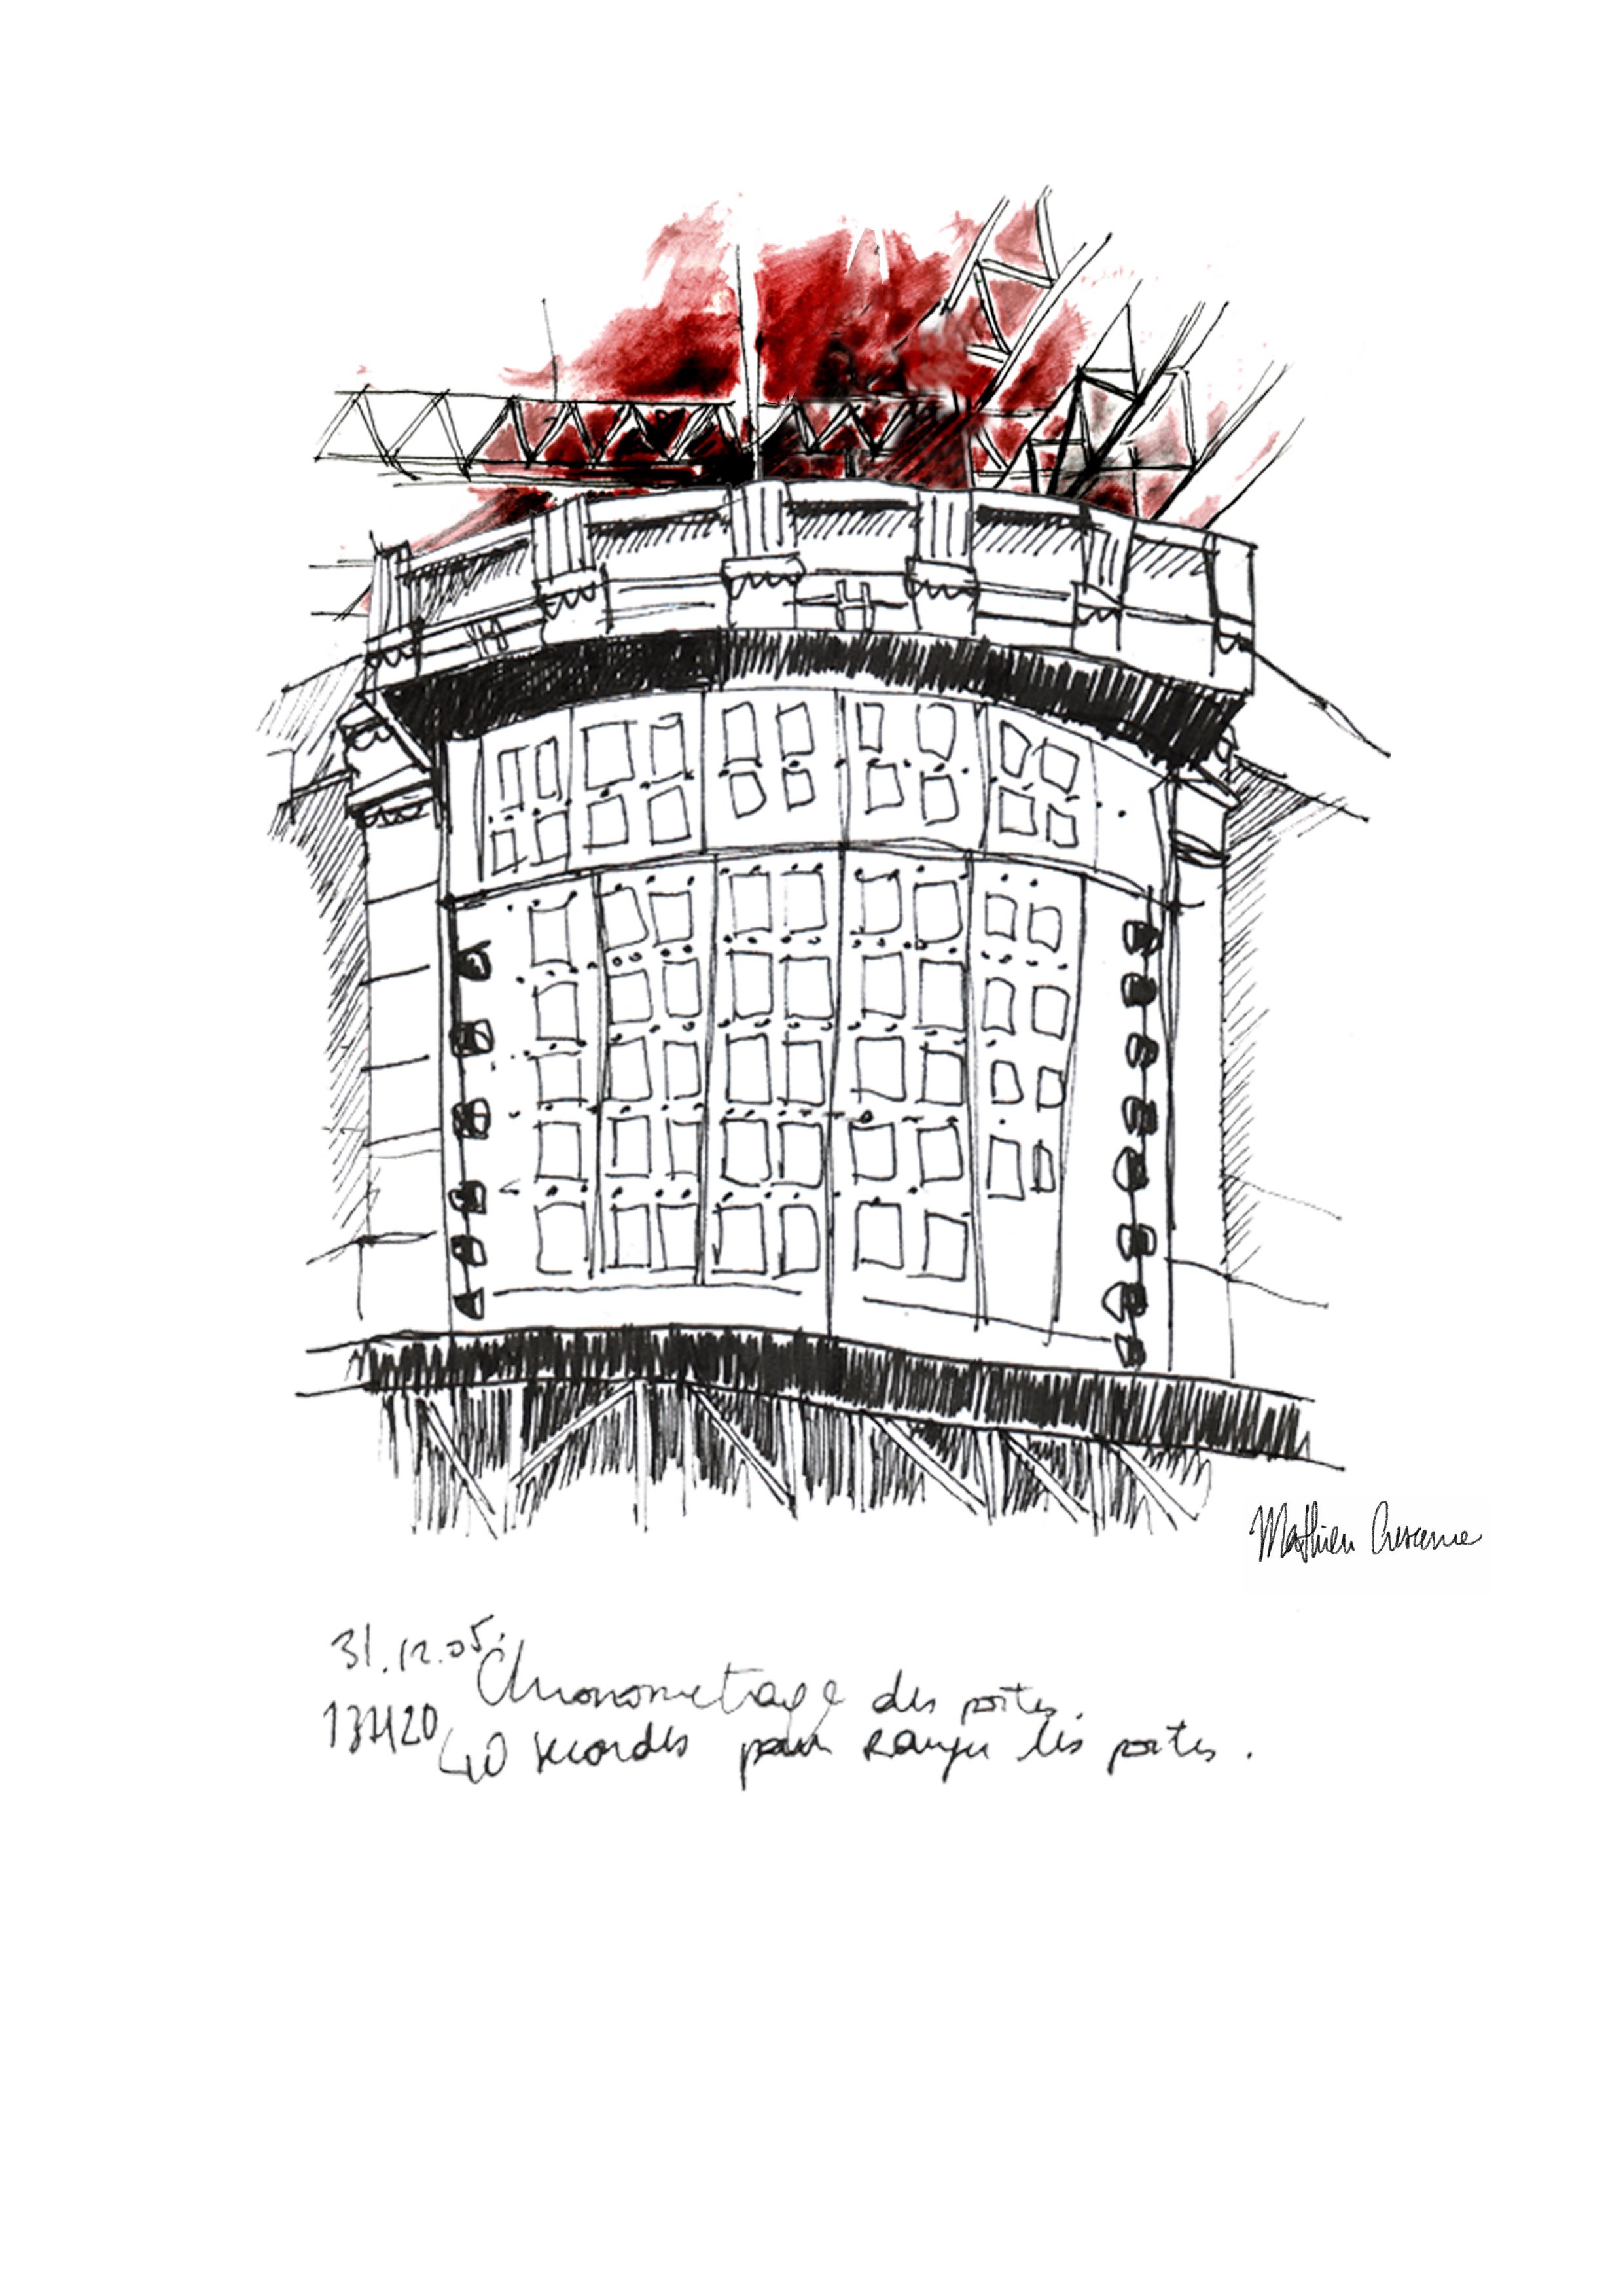 Mathieu
31.12.05. Chronometrage des portes.
13H20 40 secondes pour ranger les portes.